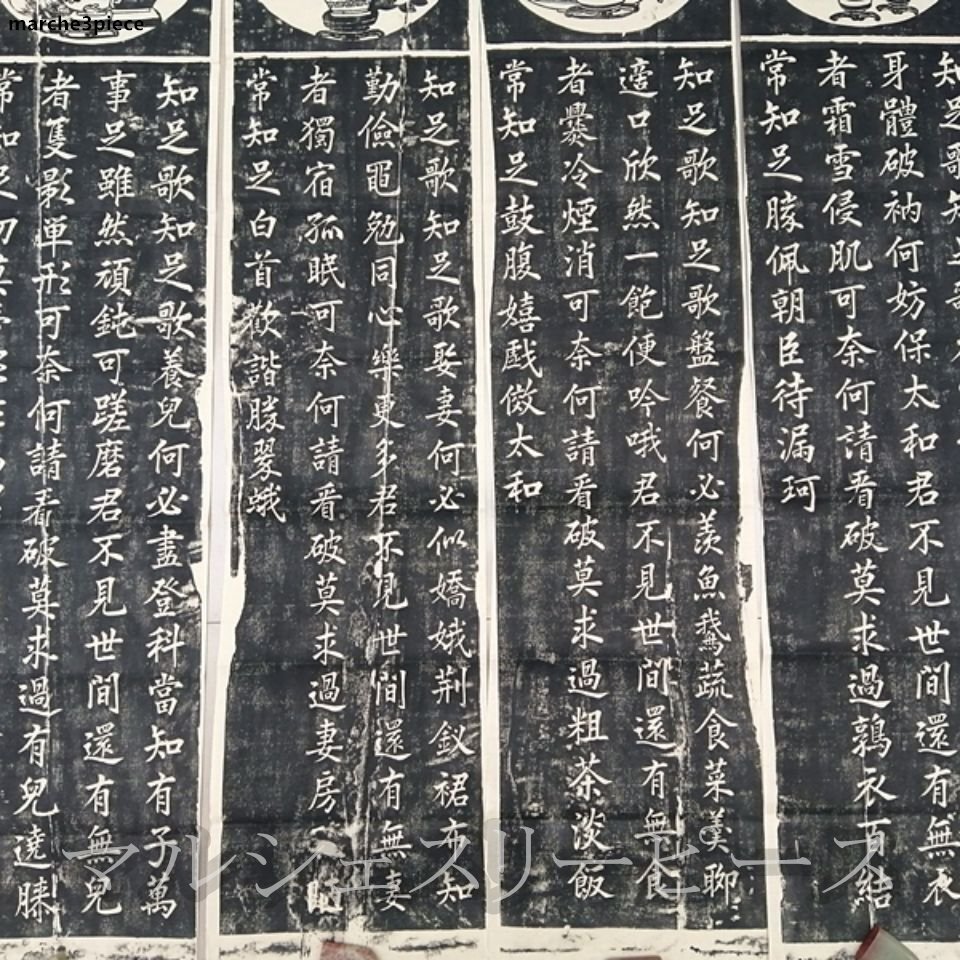 marche3piece
知足歌知
身體破衲何妨保太和君不見世間還有無衣
者霜雪侵肌可奈何請看破莫求過鶉衣百結
常知足朦佩朝臣待漏珂
知足歌知足歌盤餐何必羨魚鵝蔬食菜羹聊
適口欣然一飽便吟哦君不見世間還有無食
者爨冷煙消可奈何請看破莫求過粗茶淡飯
常知足鼓腹嬉戲傲太和
知足歌知足歌娶妻何必似嬌娥荆釵裙布知
勤儉黽勉同心樂更多君不見世間還有無妻
者獨宿孤眠可奈何請看破莫求過妻房
常知足白首歡諧勝翠蛾
知足歌知足歌養兒何必盡登科當知有子萬
事足雖然頑鈍可蹉磨君不見世間還有無兒
者隻影単形可奈何請看破莫求過有兒遶膝
常知足切莫
マルシェスリーピース